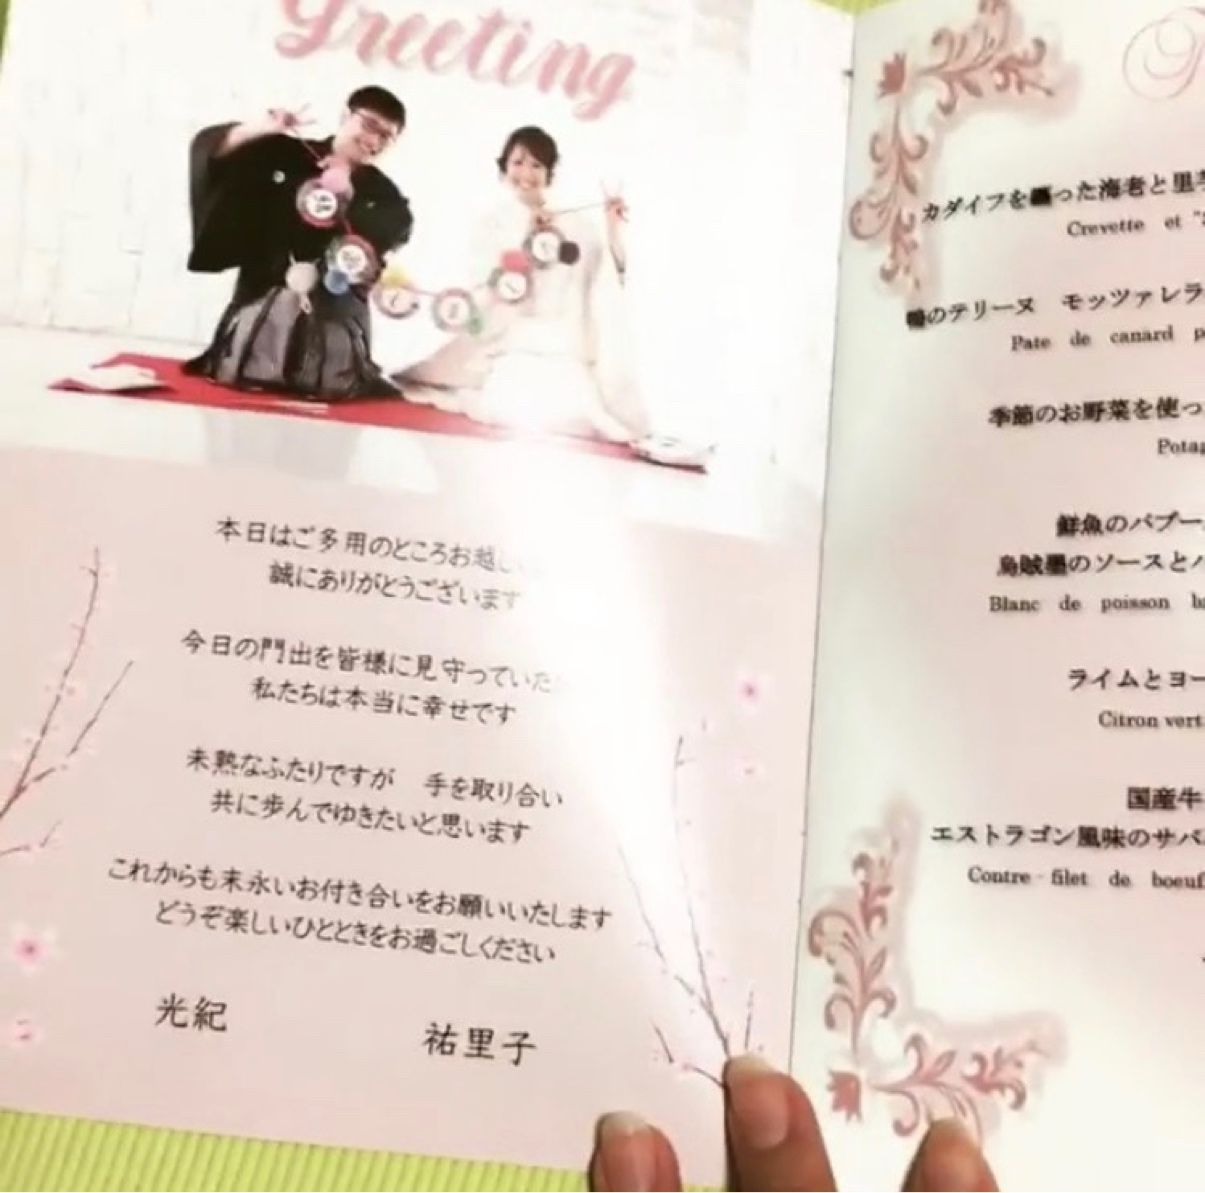 Greeting
本日はご多用のところお越し
誠にありがとうございます
今日の門出を皆様に見守っていただ
私たちは本当に幸せです
未熟なふたりですが 手を取り合い
共に歩んでゆきたいと思います
これからも末永いお付き合いをお願いいたします
どうぞ楽しいひとときをお過ごしください
光紀 祐里子
カダイフを纏った海老と里芋
Crevette et
鴨のテリーヌ モッツァレラ
Pate de canard
季節のお野菜を使っ
Potag
鮮魚のバプー
烏賊墨のソースと
Blanc de poisson
ライムとヨー
Citron vert
国産牛
エストラゴン風味のサバ
Contre - filet de boeuf